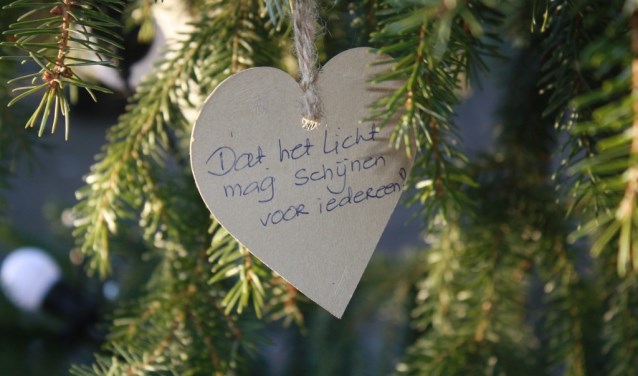 Dat het Licht
mag schijnen
voor iedereen!